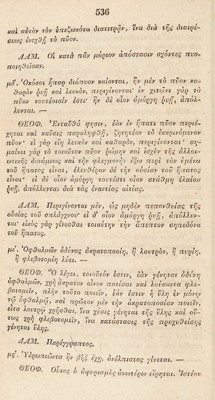 536
καὶ αὐτὸν τὸν ὑπεζωκότα διατιτρᾶν, ἵνα διὰ τῆς διαιρέ-
σεως ἐνεχθῇ τὸ πῦον.
ΔΑΜ. Οἱ κατὰ πᾶν μόριον ἀπόστασιν σχόντες πυο-
ποιηθεῖσαν.
με΄. Ὁκόσοι ἧπαρ διάπυον καίονται, ἢν μὲν τὸ πῦον κα-
θαρὸν ῥυῇ καὶ λευκὸν, περιγίνονται· ἐν χιτῶνι γὰρ τὸ
πῦον τουτέοισίν ἐστι· ἢν δὲ οἷον ἀμόργη ῥυῇ, ἀπόλ-
λυνται. —
ΘΕΟΦ. Ἐνταῦθά φησιν, ἐὰν ἐν ἥπατι πῦον περιέ-
χηται καὶ καῦσις παραληφθῇ, ζητητέον τὸ ἐκκρινόμενον
πῦον· εἰ γὰρ εἴη λευκὸν καὶ καθαρὸν, περιγίνονται· ση-
μαίνει γὰρ τὸ τοιοῦτον πῦον ῥώμην καὶ ἰσχὺν τῆς ἀλλοιω-
τικῆς δυνάμεως καὶ τὴν φλεγμονὴν ἔξω περὶ τὸν ὑμένα
τοῦ ἥπατος εἶναι, ἐλευθέραν δὲ τὴν οὐσίαν τοῦ ἥπατος
εἶναι· εἰ δὲ οἷον ἀμόργη τουτέστιν οἷον στάθμη ἐλαίου
ῥυῇ, ἀπόλλυνται διὰ τὰς ἐναντίας αἰτίας.
ΔΑΜ. Περιγίνονται μὲν, ὡς μηδὲν πεπονθυίας τῆς
οὐσίας τοῦ σπλάγχνου· εἰ δ᾽ οἷον ἀμόργη ῥυῇ, ἀπόλλυν-
ται· εἰκὸς γὰρ γίνεσθαι τοιαύτην τὴν ἄπεπτον σηπεδόνα
τοῦ ἥπατος.
μς΄. Ὀφθαλμῶν ὀδύνας ἀκρατοποσίη, ἢ λουτρὸν, ἢ πυρίη,
ἢ φλεβοτομίη λύει. —
ΘΕΟΦ. Ὃ λέγει, τοιοῦτόν ἐστιν, ἐὰν γένηται ὀδύνη
ὀφθαλμῶν, χρὴ ἄκρατον οἶνον ποτίσαι καὶ λούσαντα φλε-
βοτομεῖν, πλὴν τοῦτο ποιεῖν, ἐάν ἐστιν ἡ ὕλη ἐν μόνῳ
τῷ ὀφθαλμῷ, καὶ πρῶτον μὲν τὴν ἀκρατοποσίαν ποιεῖν,
εἶτα λουτρῷ χρῆσθαι, ἵνα χύσις γένηται τῆς ὕλης καὶ οὕ-
τως χρὴ φλεβοτομεῖν, ἵνα κατάστασις τῆς προχυθείσης
γένηται ὕλης.
ΔΑΜ. Παρέγγραπτος.
μζ΄. Ὑδρωπιῶντα ἢν βὴξ ἔχῃ, ἀνέλπιστος γίνεται. —
ΘΕΟΦ. Οὗτος ὁ ἀφορισμὸς ἀνωτέρω εἴρηται. Ἰστέον